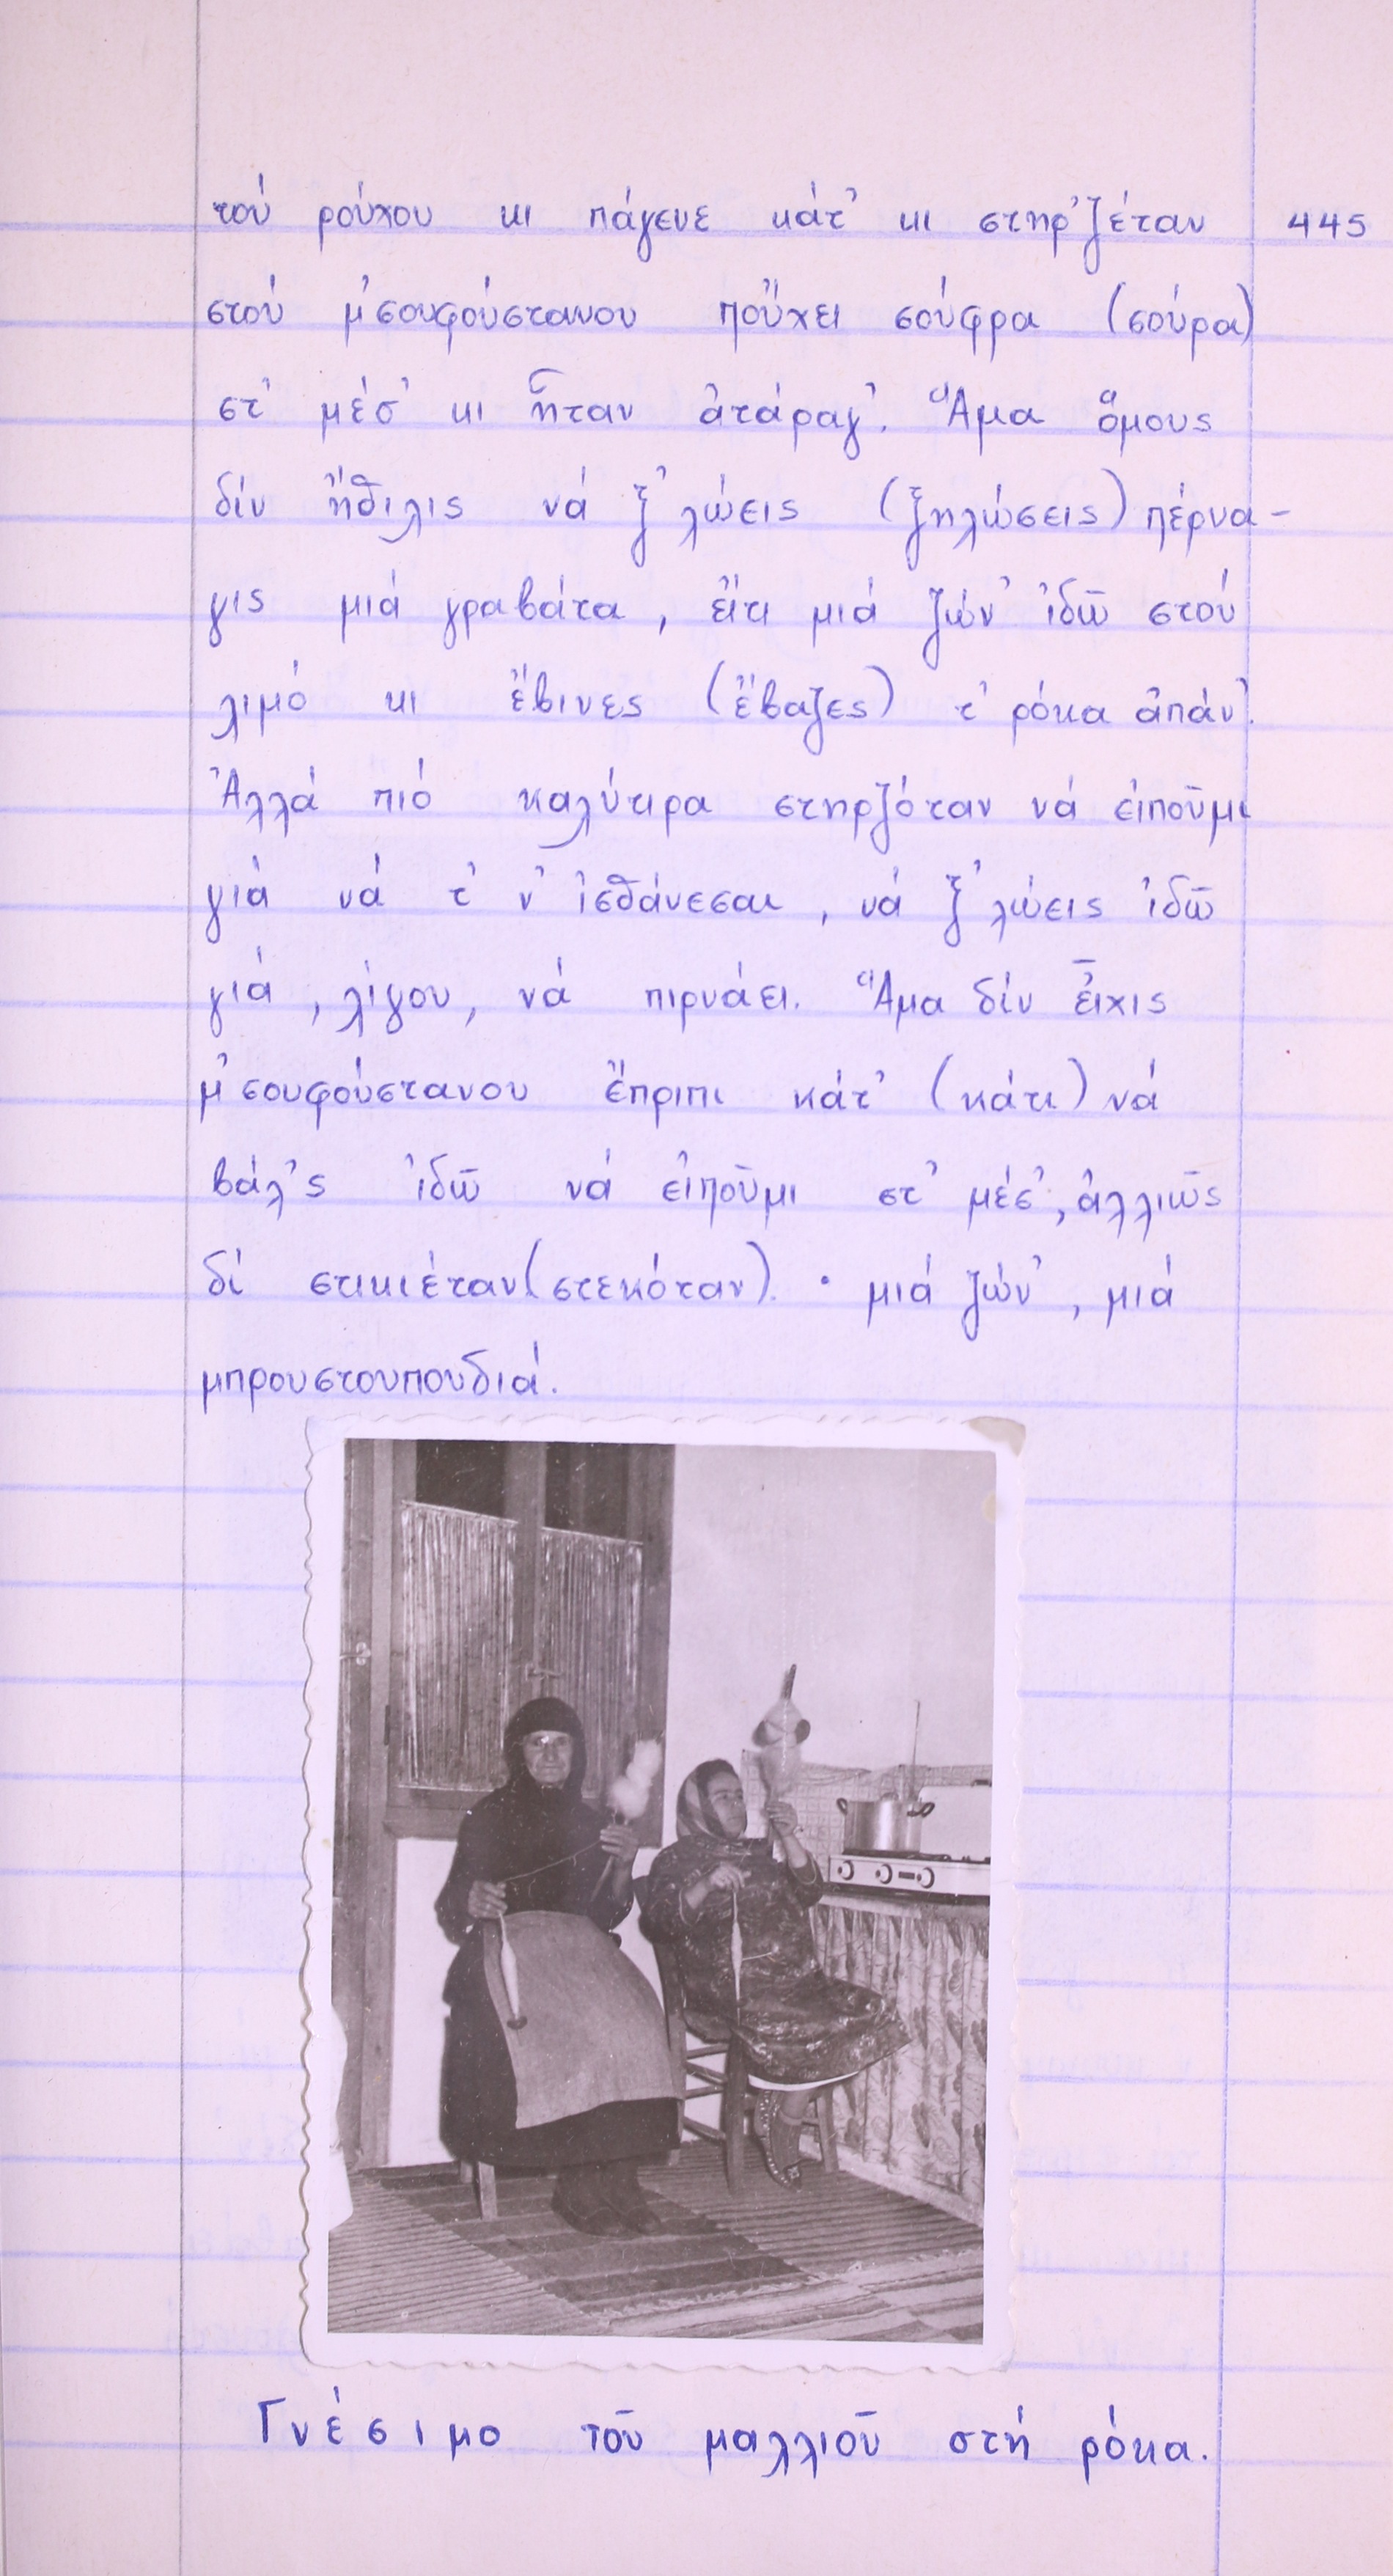 τού ρούχου κι πάγενε κάτ' κι στηρ'ζέταν 445
στού μ'σουφούστανου πὄυχει σούφρα (σούρα)
στ' μέσ' κι ἦταν ἀτάραγ'. Ἅμα ὅμους
δίν ἤθιλις νά ξ'λώεις (ξηλώσεις) πέρνα-
γις μιά γραβάτα, ἔιτι μιά ζών' ἰδῶ στού
λιμό κι ἔβινες (ἔβαζες) τ' ρόκα ἀπάν'.
Ἀλλά πιό καλύτιρα στηρζόταν νά εἰποῦμι
γιά νά τ' ν' ἰσθάνεσαι, νά ξ'λώεις ἰδῶ
γιά, λίγου, νά πιρνάει. Ἅμα δίν εἶχις
μ'σουφούστανου ἔπριπι κάτ' (κάτι) νά
βάλ'ς ἰδῶ νά εἰποῦμι στ' μέσ', ἀλλιῶς
δί στικιέταν (στεκόταν). · μιά ζών', μιά
μπρουστουπουδιά.
Γνέσιμο τοῦ μαλλιοῦ στή ρόκα.